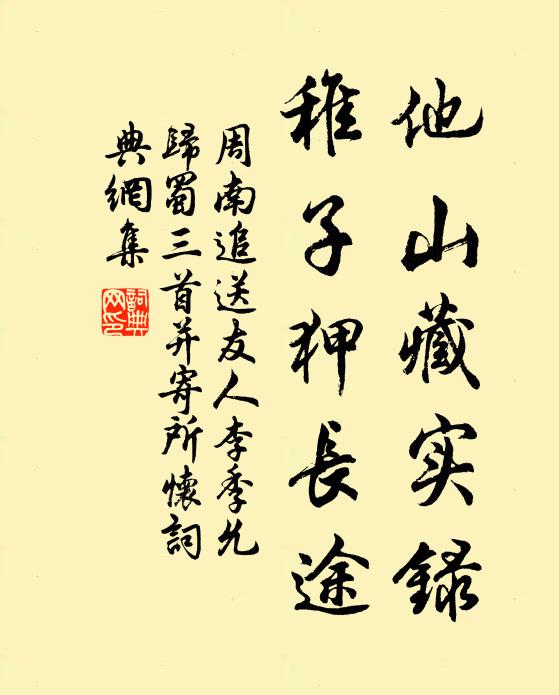 他山藏实録
稚子狎長途
周南追送友人李季允
歸蜀三首并寄所懷詞
典網集
詞典網印